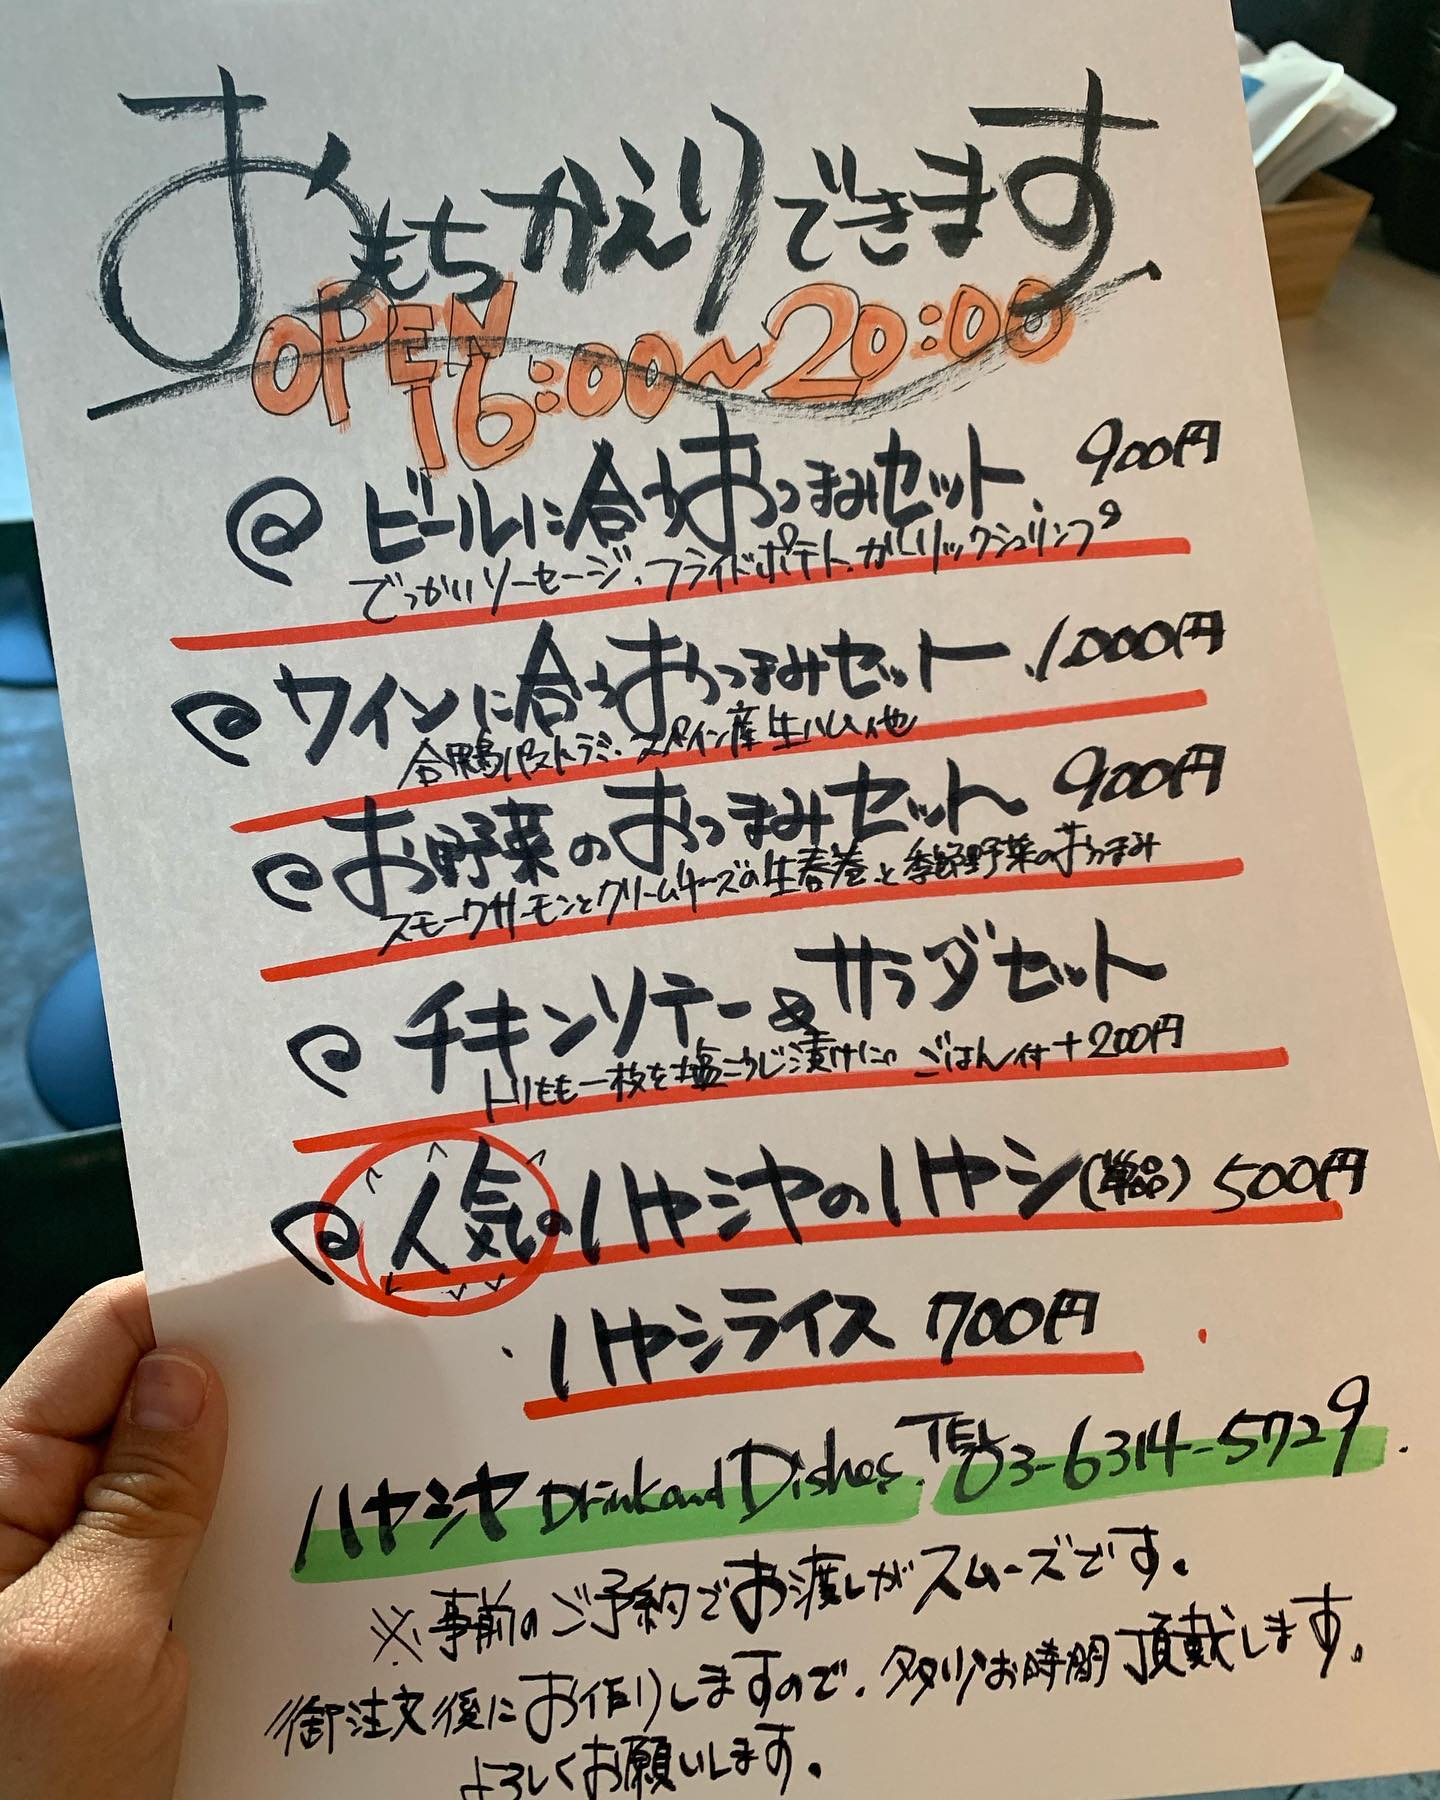 おもちかえりできます
OPEN 16:00〜20:00
ビールに合うおつまみセット 900円
でっかいソーセージ、フライドポテト、ガーリックシュリンプ
ワインに合うおつまみセット 1,000円
合鴨パストラミ・スペイン産生ハム、他
お野菜のおつまみセット 900円
スモークサーモンとクリームチーズの生春巻と季節野菜のおつまみ
チキンソテー&サラダセット
トリもも一枚を塩こうじ漬けに ごはん付+200円
人気のハヤシヤのハヤシ(単品) 500円
ハヤシライス 700円
ハヤシヤ Drink and Dishes. TEL 03-6314-5729
※事前のご予約でお渡しがスムーズです。
御注文後にお作りしますので、多少お時間頂戴します。
よろしくお願いします。